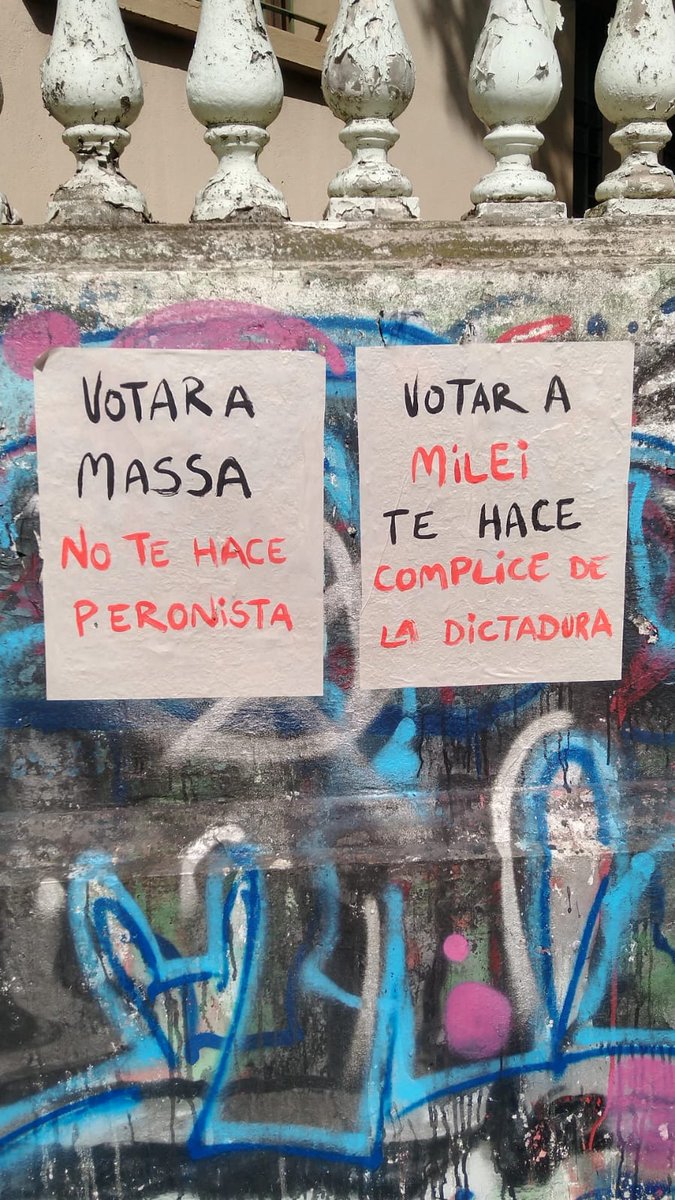 VOTAR A
MASSA
NO TE HACE
PERONISTA
VOTAR A
MILEI
TE HACE
COMPLICE DE
LA DICTADURA